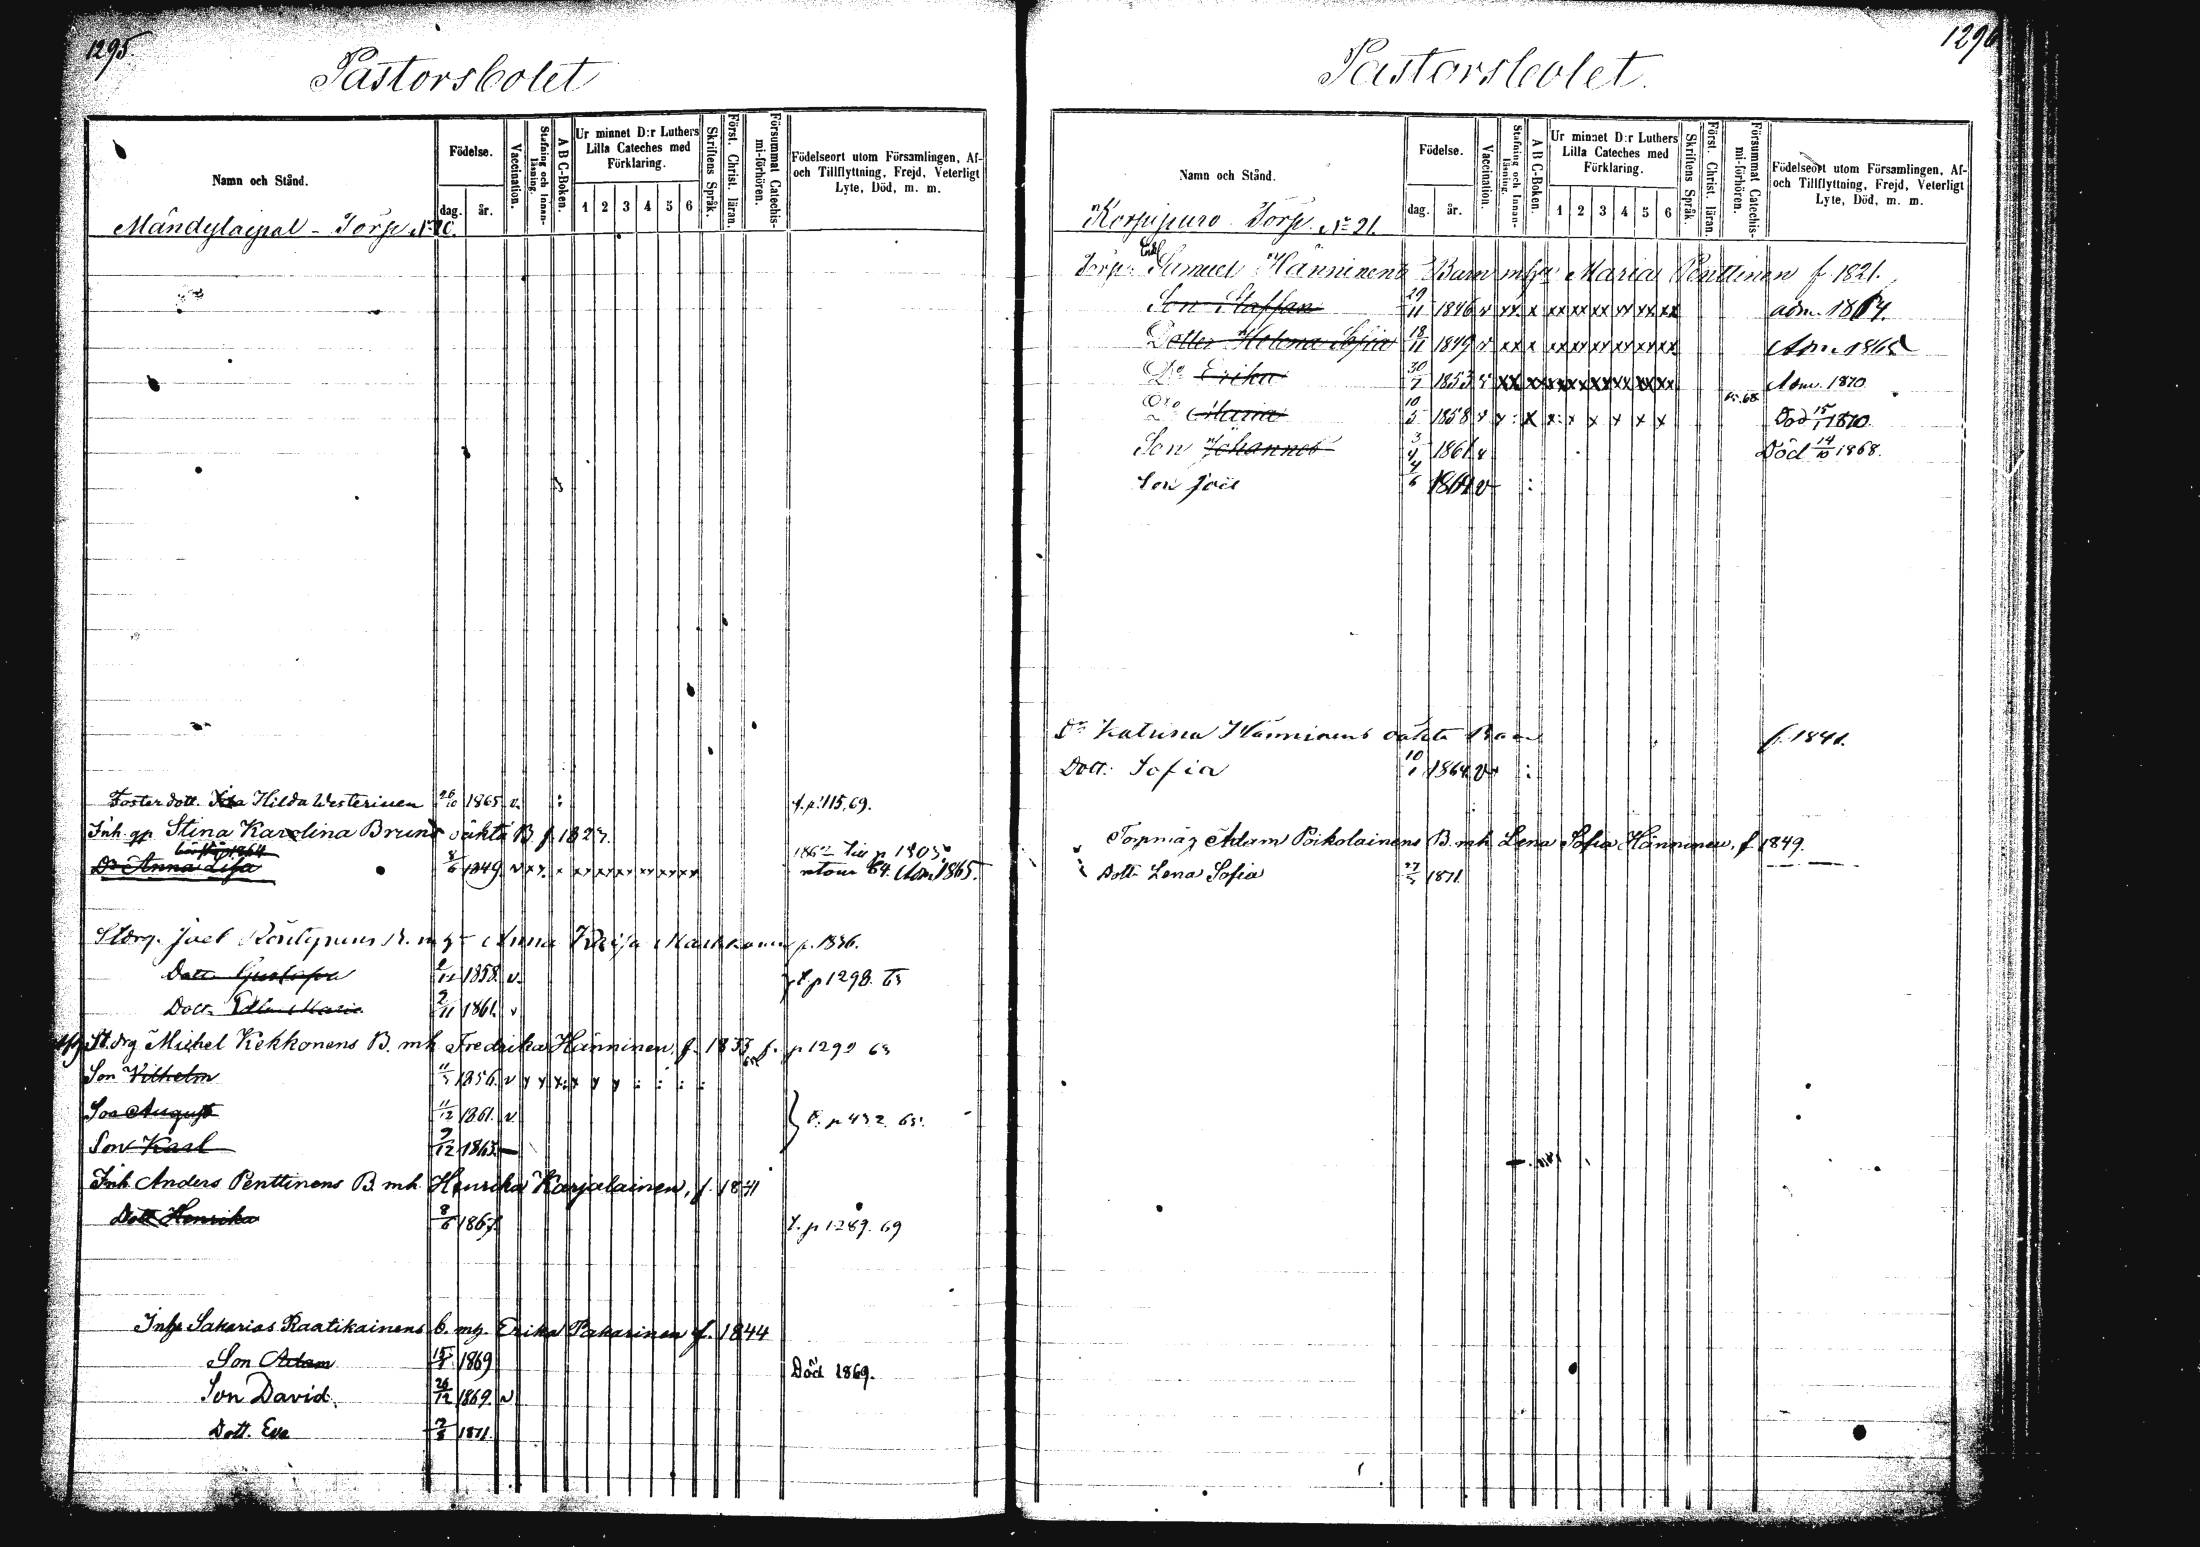 1295.
Pastorsbolet
Namn och Stånd.
Födelse.
dag. år.
Vaccination.
Stafning och Innan-läsning.
A B C-Boken.
Ur minnet D:r Luthers Lilla Cateches med Förklaring.
1 2 3 4 5 6
Skriftens Språk.
Först. Christ. läran.
Försummat Catechis-mi-förhören.
Födelseort utom Församlingen, Af- och Tillflyttning, Frejd, Veterligt Lyte, Död, m. m.
Mändylaipal - Torp No 20.
Foster dott. Hilda Westerinen 26/10 1865 v. : f. p. 115, 69.
Inh. Stina Karolina Bruns oäkta B. f. 1827.
Dr Anna Lisa 8/6 1849 v xx x xx xx xx xx xx xx till p 1303 64. Adm 1865.
Joel B. m. Anna Kaisa f. 1836.
Dott. Gustafva 1858. v. p 1298. 63
Dott. Maria 9/11 1861. v
St. drg Michel Kekkonens B. mh Fredrika Hänninen, f. 1833 f. p 1292 63
Son Vilhelm 1856. v x x x: x x x : : : :
Son August 11/12 1861. v p 432 65.
Son Karl 9/12 1863. —
Inh. Anders Penttinens B. mh. Henrika Karjalainen, f. 1841
Dott Henrika 8/6 1867. f. p 1289. 69
Inh Sakarias Raatikainens b. mh. Erika Pakarinen f. 1844
Son Adam 1869 Död 1869.
Son David. 26/12 1869. v
Dott. Eva 1871.
1296
Pastorsbolet.
Namn och Stånd.
Födelse.
dag. år.
Vaccination.
Stafning och Innan-läsning.
A B C-Boken.
Ur minnet D:r Luthers Lilla Cateches med Förklaring.
1 2 3 4 5 6
Skriftens Språk.
Först. Christ. läran.
Försummat Catechis-mi-förhören.
Födelseort utom Församlingen, Af- och Tillflyttning, Frejd, Veterligt Lyte, Död, m. m.
Korpipuro Torp. No 21.
Torp. Samuel Hänninens Barn mh Maria Penttinen f. 1821.
Son Staffan 29/11 1846 v xx x xx xx xx xx xx xx adm. 1864.
Dotter Helena Sofia 18/11 1849 v xx x xx xx xx xx xx xx Adm. 1865
Do Erika 30/7 1853 v xx xx xx xx xx xx xx xx Adm. 1870
Do Maria 10/5 1858 v x: x x: x x x x x 68 Död 15/1 1870.
Son Johannes 3/4 1861 v Död 14/10 1868.
Son Joel 4/6 1864 v :
Dr Katrina Hänninens oäkta Barn f. 1841.
Dott. Sofia 10/1 1864. v :
Torpmåg Adam Poikolainens B. mh. Lena Sofia Hänninen, f. 1849.
Dott Lena Sofia 1871.